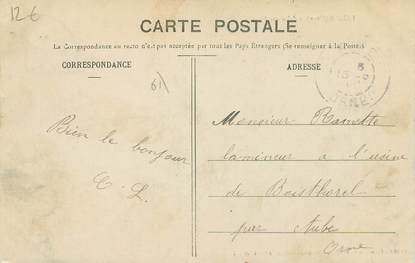 12 €
CARTE POSTALE
La Correspondance au recto n'est pas acceptée par tous les Pays Étrangers (Se renseigner à la Poste)
CORRESPONDANCE
ADRESSE
61
Bien le bonjour
C. L.
Monsieur
lamineur a l'usine
de Boisthorel
par Aube
Orne